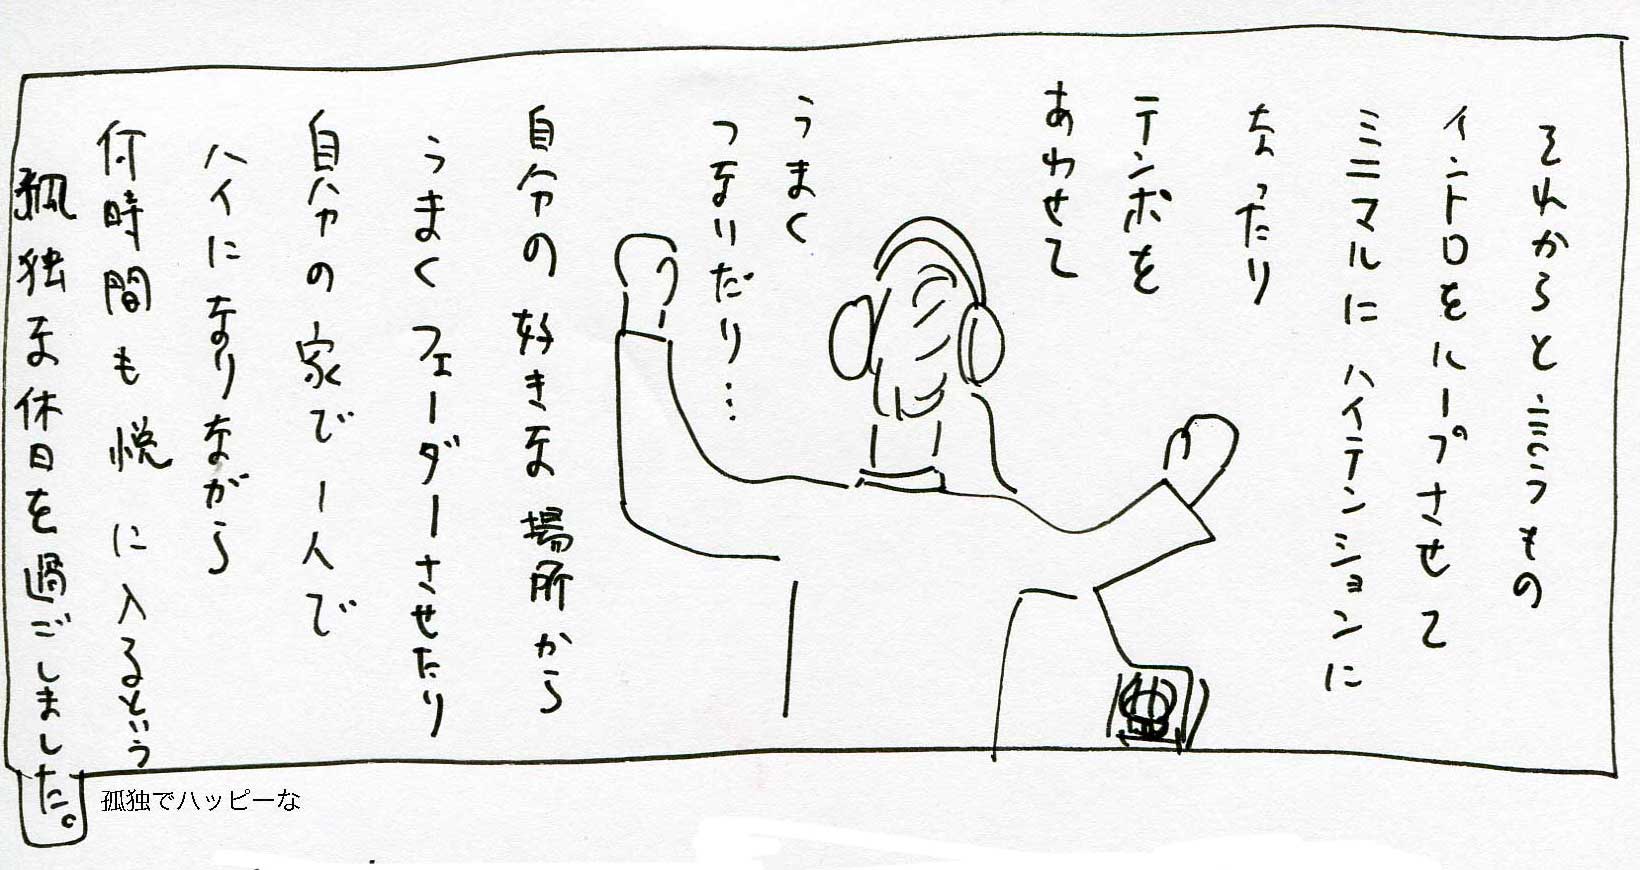 それからと言うもの
イントロをループさせて
ミニマルにハイテンションに
なったり
テンポを
あわせて
うまく
つないだり…
自分の好きな場所から
うまくフェーダーさせたり
自分の家で一人で
ハイになりながら
何時間も悦に入るという
孤独な休日を過ごしました。
孤独でハッピーな